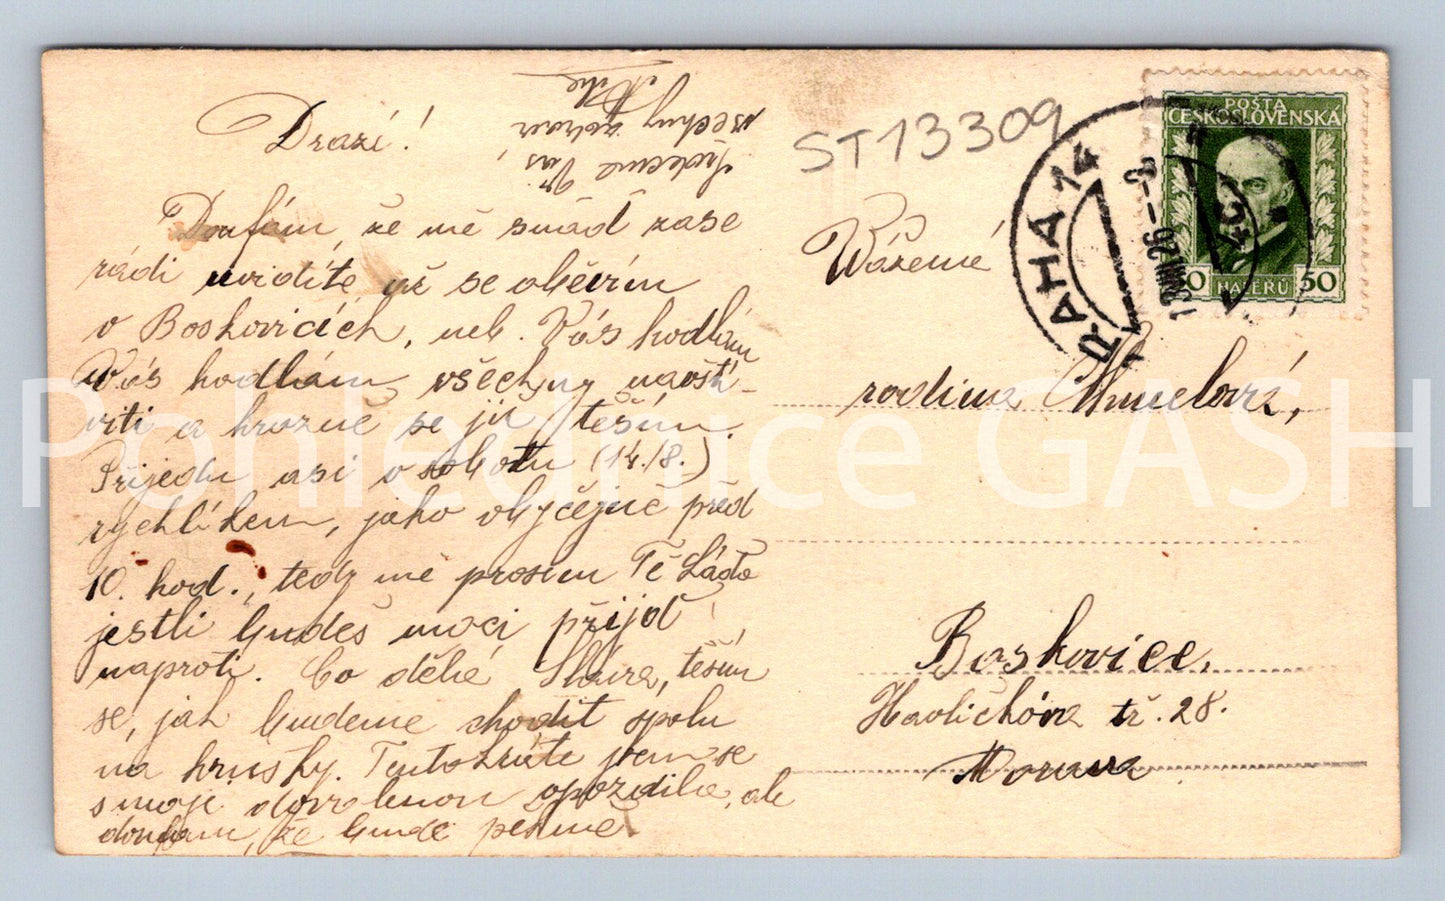 Drazí!
Doufám, že mě snad zase
rádi uvidíte, až se objevím
v Boskovicích, neb. Vás hodlám
Vás hodlám všechny navští-
viti a hrozně se již těším.
Přijedu asi v sobotu (14./8.)
rychlíkem, jako obyčejně před
10. hod., tedy mě prosím Tě Láďo
jestli budeš moci přijď
naproti. Co dělá Slávra, těším
se, jak budeme chodit spolu
na hrušky. Tentokráte jsem se
s moji dovolenou opozdila, ale
doufám, že bude pěkně.
Srdečně Vás
všechny zdraví
ST13309
PRAHA 14
POŠTA
ČESKOSLOVENSKÁ
50 HALÉŘŮ 50
Vážená
rodina Chmelová,
Boskovice.
Havlíčkova tř. 28.
Morava
Pohlednice GASH